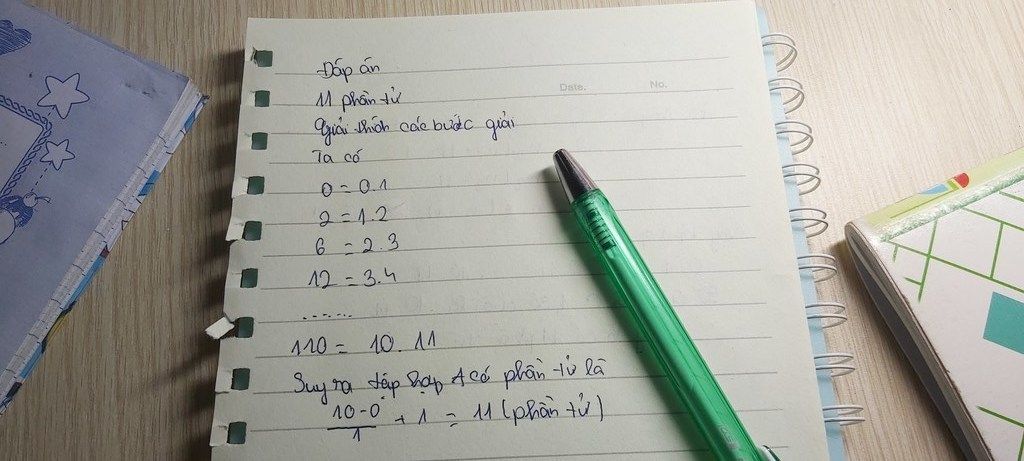 Đáp án
Date.
No.
11 phần tử
Giải thích các bước giải
Ta có
0 = 0.1
2 = 1.2
6 = 2.3
12 = 3.4
.......
110 = 10.11
Suy ra tập hợp A có phần tử là
10-0/1 + 1 = 11 (phần tử)